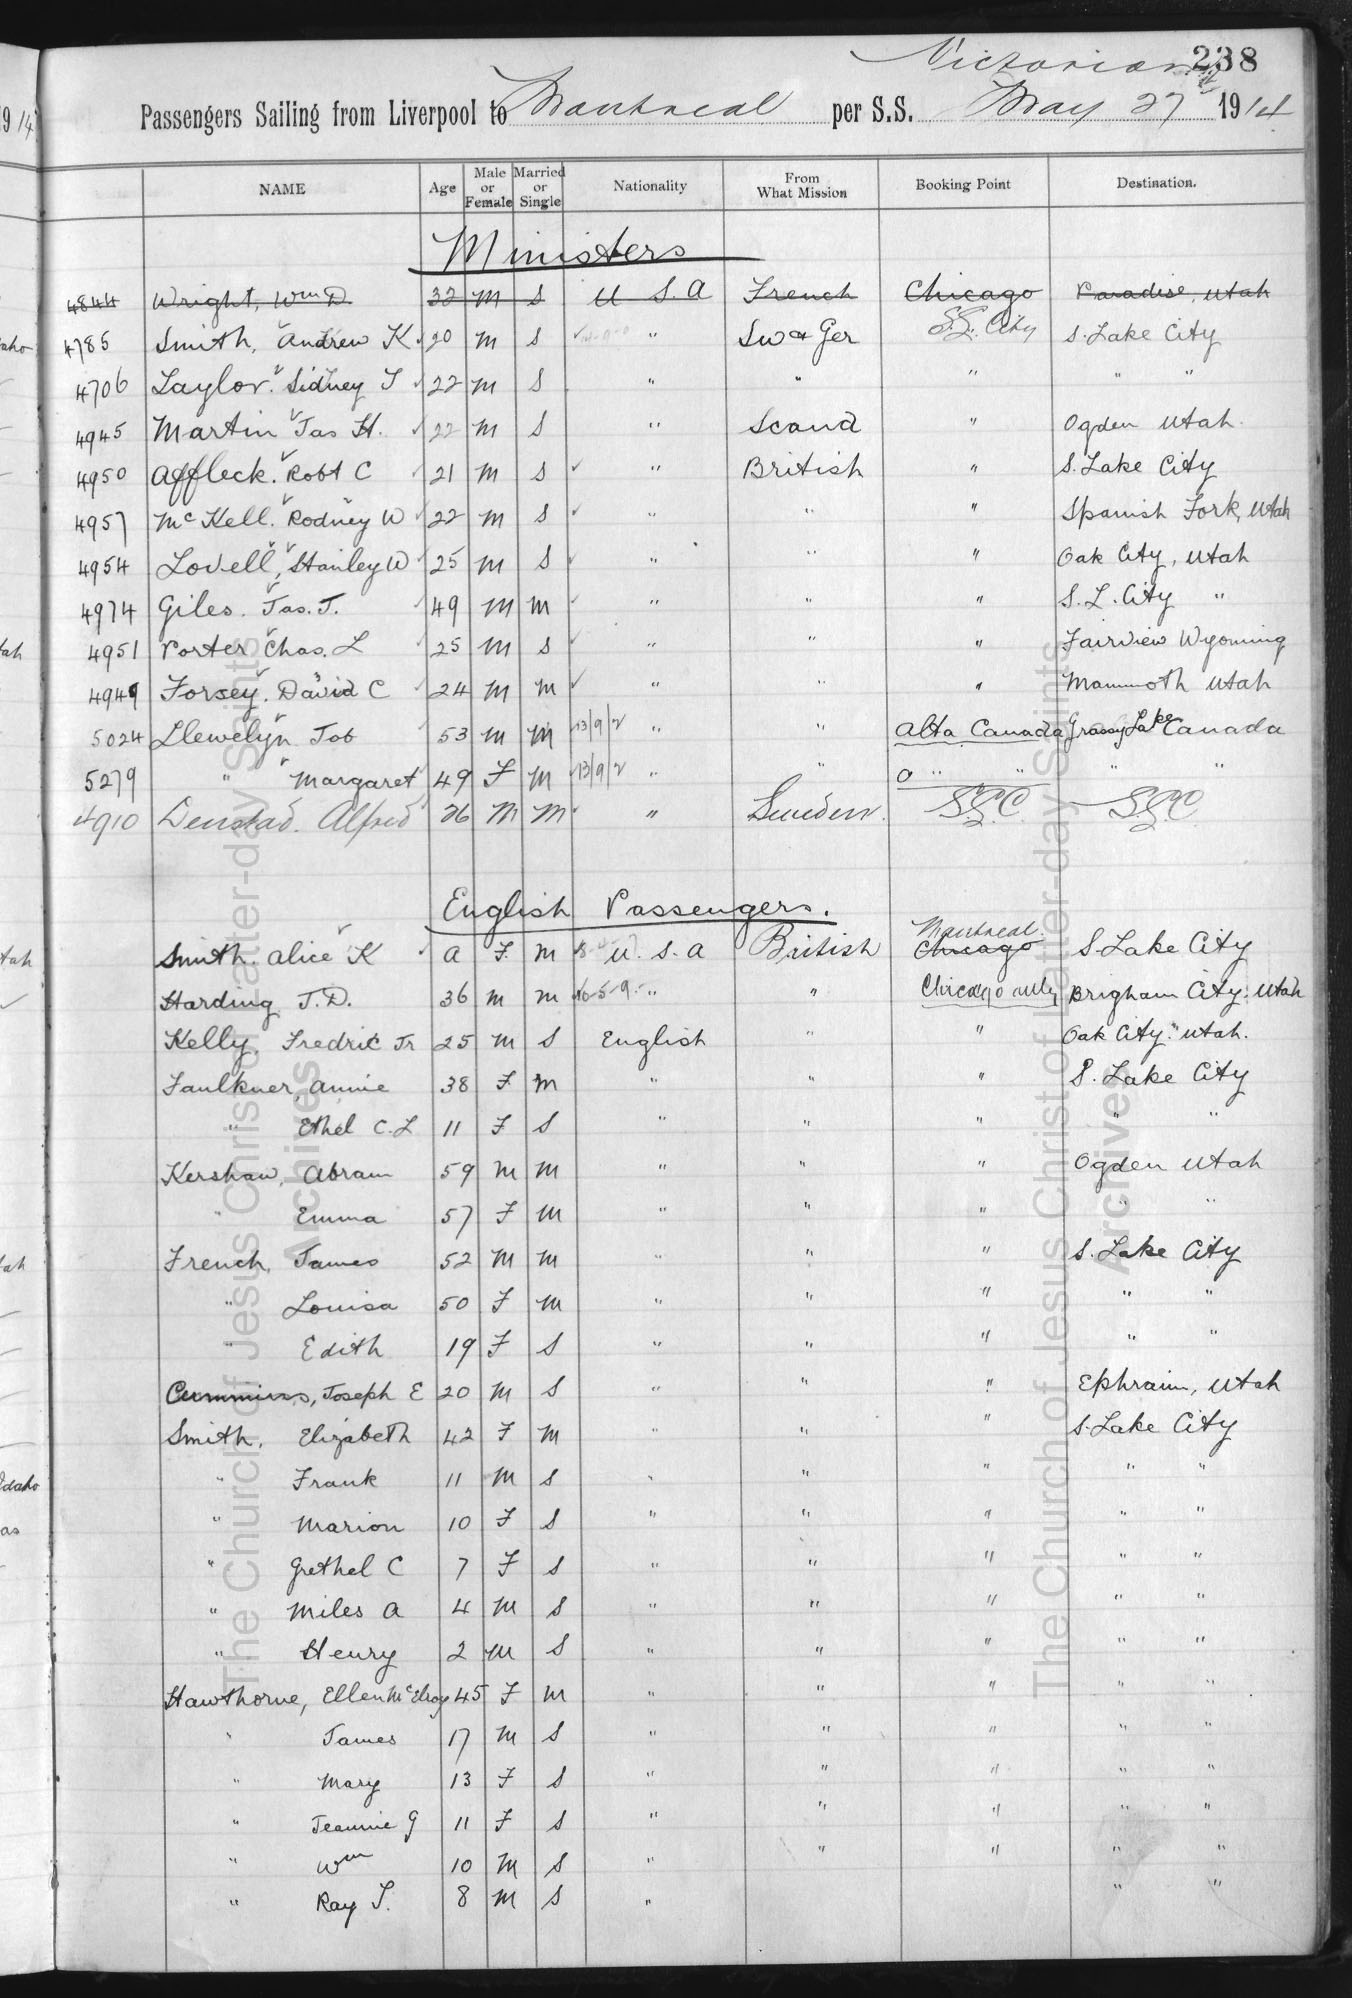 Victorian 238
Passengers Sailing from Liverpool to Montreal per S.S. May 27th 1914
NAME Age Male or Female Married or Single Nationality From What Mission Booking Point Destination.
Ministers
4844 Wright, Wm D. 32 M S U S. A French Chicago Paradise, Utah
4785 Smith, Andrew K 20 M S " Sw & Ger S.L. City S. Lake City
4706 Taylor. Sidney T 22 M S " " " " "
4945 Martin Jas H. 22 M S " Scand " Ogden Utah.
4950 Affleck. Robt C 21 M S " British " S. Lake City
4957 McKell. Rodney W 22 M S " " " Spanish Fork, Utah
4954 Lovell, Stanley W 25 M S " " " Oak City, Utah
4974 Giles. Jas. T. 49 M M " " " S. L. City "
4951 Porter Chas. L 25 M S " " " Fairview Wyoming
4949 Forsey. David C 24 M M " " " Mammoth Utah
5024 Llewelyn Job 53 M M 13/9/2 " " Alta Canada Grassy Lake Canada
5279 " Margaret 49 F M 13/9/2 " " " " " "
4910 Denstad. Alfred 26 M M " Sweden. S.L.C. S.L.C.
English Passengers.
Montreal.
Smith. Alice K A F. M U. S. A British Chicago S. Lake City
Harding T.D. 36 M M 16-5-9- " " Chicago only Brigham City. Utah
Kelly, Fredric Jr 25 M S English " " Oak City. Utah.
Faulkner, Annie 38 F. M " " " S. Lake City
" Ethel C. L 11 F S " " " " "
Kershaw, Abram 59 M M " " " Ogden Utah
" Emma 57 F M " " " " "
French, James 52 M M " " " S. Lake City
" Louisa 50 F M " " " " "
" Edith 19 F S " " " " "
Cummings, Joseph E 20 M S " " " Ephraim, Utah
Smith, Elizabeth 42 F M " " " S. Lake City
" Frank 11 M S " " " " "
" Marion 10 F S " " " " "
" Grethel C 7 F S " " " " "
" Miles A 4 M S " " " " "
" Henry 2 M S " " " " "
Hawthorne, Ellen McElroy 45 F M " " " " "
" James 17 M S " " " " "
" Mary 13 F S " " " " "
" Jeannie G 11 F S " " " " "
" Wm 10 M S " " " " "
" Ray T. 8 M S " " "
The Church of Jesus Christ of Latter-day Saints
Archives
The Church of Jesus Christ of Latter-day Saints
Archives